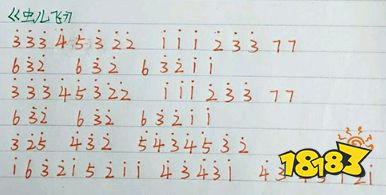 《虫儿飞》
3̇3̇3̇ 4̇5̇3̇2̇2̇ 1̇1̇1̇2̇3̇3̇ 77
63̇2̇ 63̇2̇ 63̇2̇1̇1̇
3̇3̇3̇4̇5̇3̇2̇2̇ 1̇1̇1̇2̇3̇3̇ 77
63̇2̇ 63̇2̇ 63̇2̇1̇1̇
3̇2̇5 4̇3̇2̇ 5̇4̇3̇4̇5̇3̇2̇
1̇63̇2̇1̇5̇2̇1̇1̇ 4̇3̇4̇3̇1̇
18183